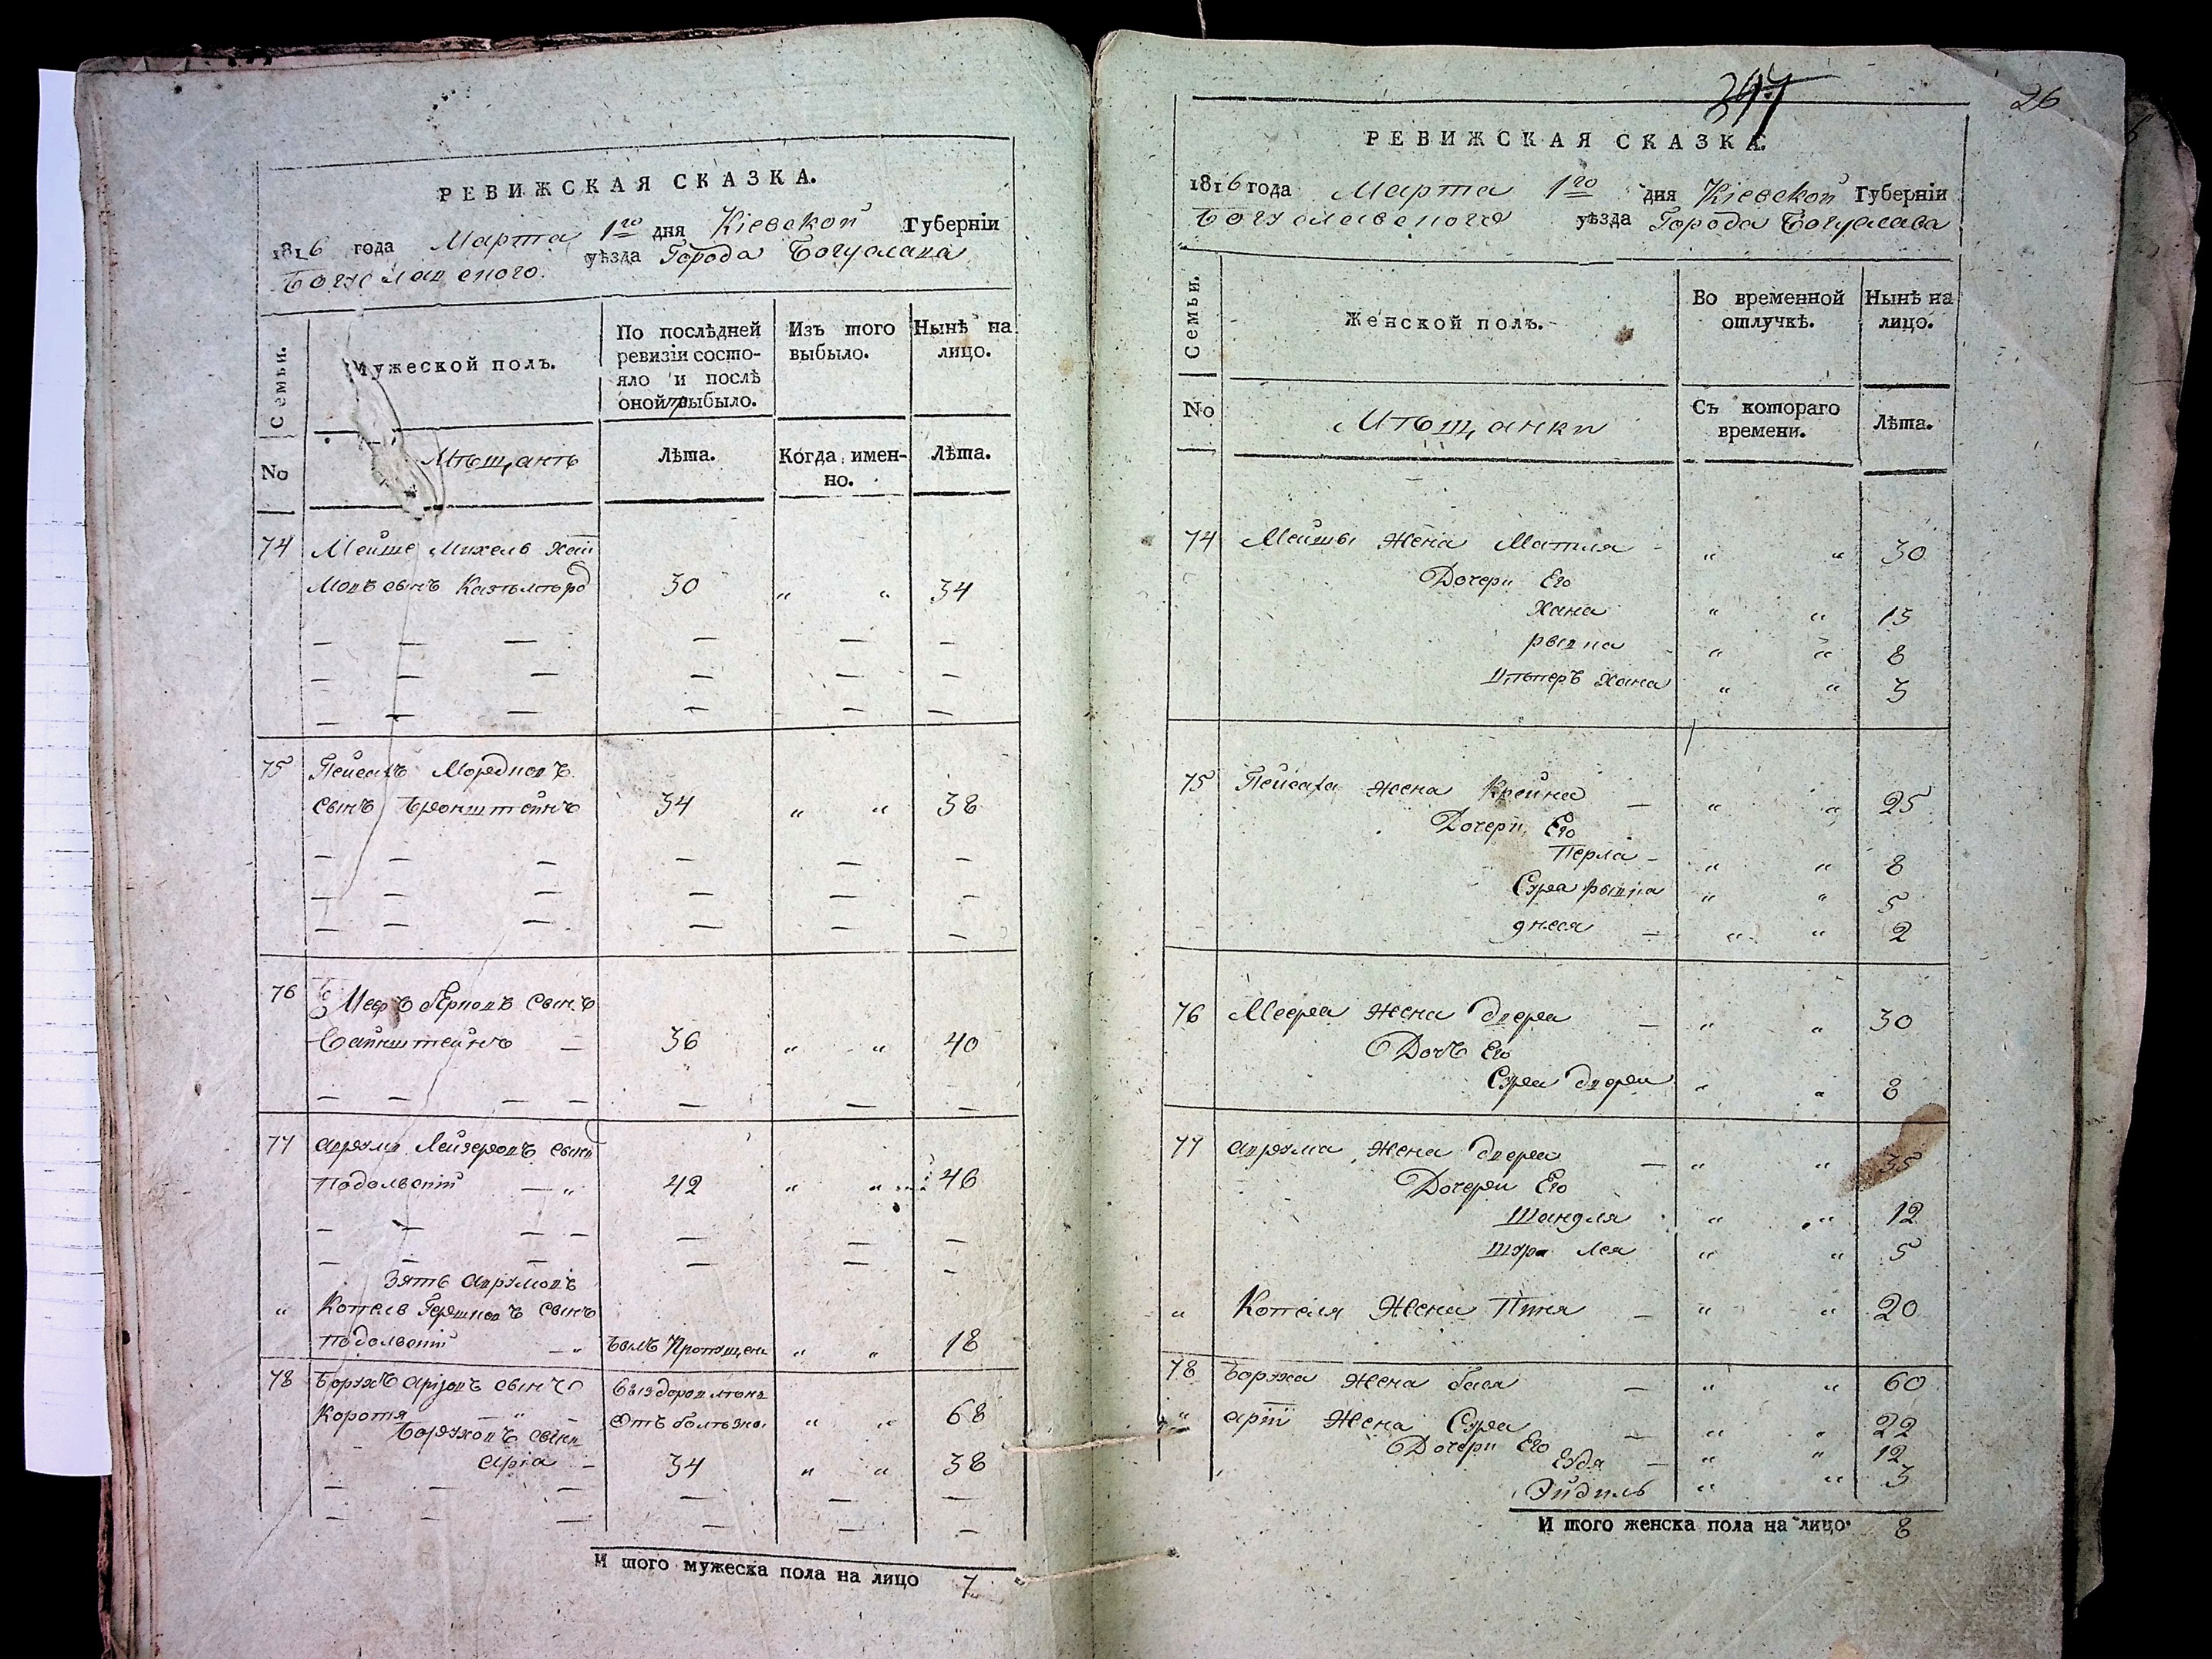 РЕВИЖСКАЯ СКАЗКА.
1816 года Марта 1го дня Кіевской Губерніи
Богуславского уѣзда Города Богуслава
Семьи.
Мужеской полъ.
По послѣдней ревизіи состо-
яло и послѣ
оной прибыло.
Изъ того
выбыло.
Нынѣ на
лицо.
No
Мѣщанъ
Лѣта.
Когда имен-
но.
Лѣта.
74 Мейше Михель Хай
мовъ сынъ 30 " " 34
75 Пейсахъ Моредковъ
сынъ Бронштейнъ 34 " " 38
76 Меєръ Берковъ сынъ
Вайнштейнъ — 36 " " 40
77 Аврумъ Лейзеровъ сынъ
Подольскій — " 42 " " 46
Зять Аврумовъ
" Котель Гершковъ сынъ
Подольскій — " Былъ Пропущенъ " " 18
78 Борухъ Аріовъ сынъ Выздоровлѣнъ
Коротя — " — Отъ болѣзни " " 68
Боруховъ сынъ
Аріа — 34 " " 38
И того мужеска пола на лицо 7
26
РЕВИЖСКАЯ СКАЗКА.
1816 года Марта 1го дня Кіевской Губерніи
Богуславского уѣзда Города Богуслава
Семьи.
Женской полъ.
Во временной
отлучкѣ.
Нынѣ на
лицо.
No
Мѣщанки
Съ котораго
времени.
Лѣта.
74 Мейшы жена Матля " " 30
Дочери Его
Хана " " 15
Рывка " " 8
Хана " " 3
75 Пейсаха жена Крейна — " " 25
Дочери Его
Перла — " " 8
Сура Рывка " " 5
— " " 2
76 Меера жена Двера — " " 30
Дочь Его
Сура Двера " " 8
77 Аврума жена Двера — " " 35
Дочери Его
Шандля " " 12
Лея " " 5
" Котеля жена — " " 20
78 Боруха жена Бася — " " 60
" Арій жена Сура — " " 22
Дочери Его
— " " 12
Эйдиль " " 3
И того женска пола на лицо. 8